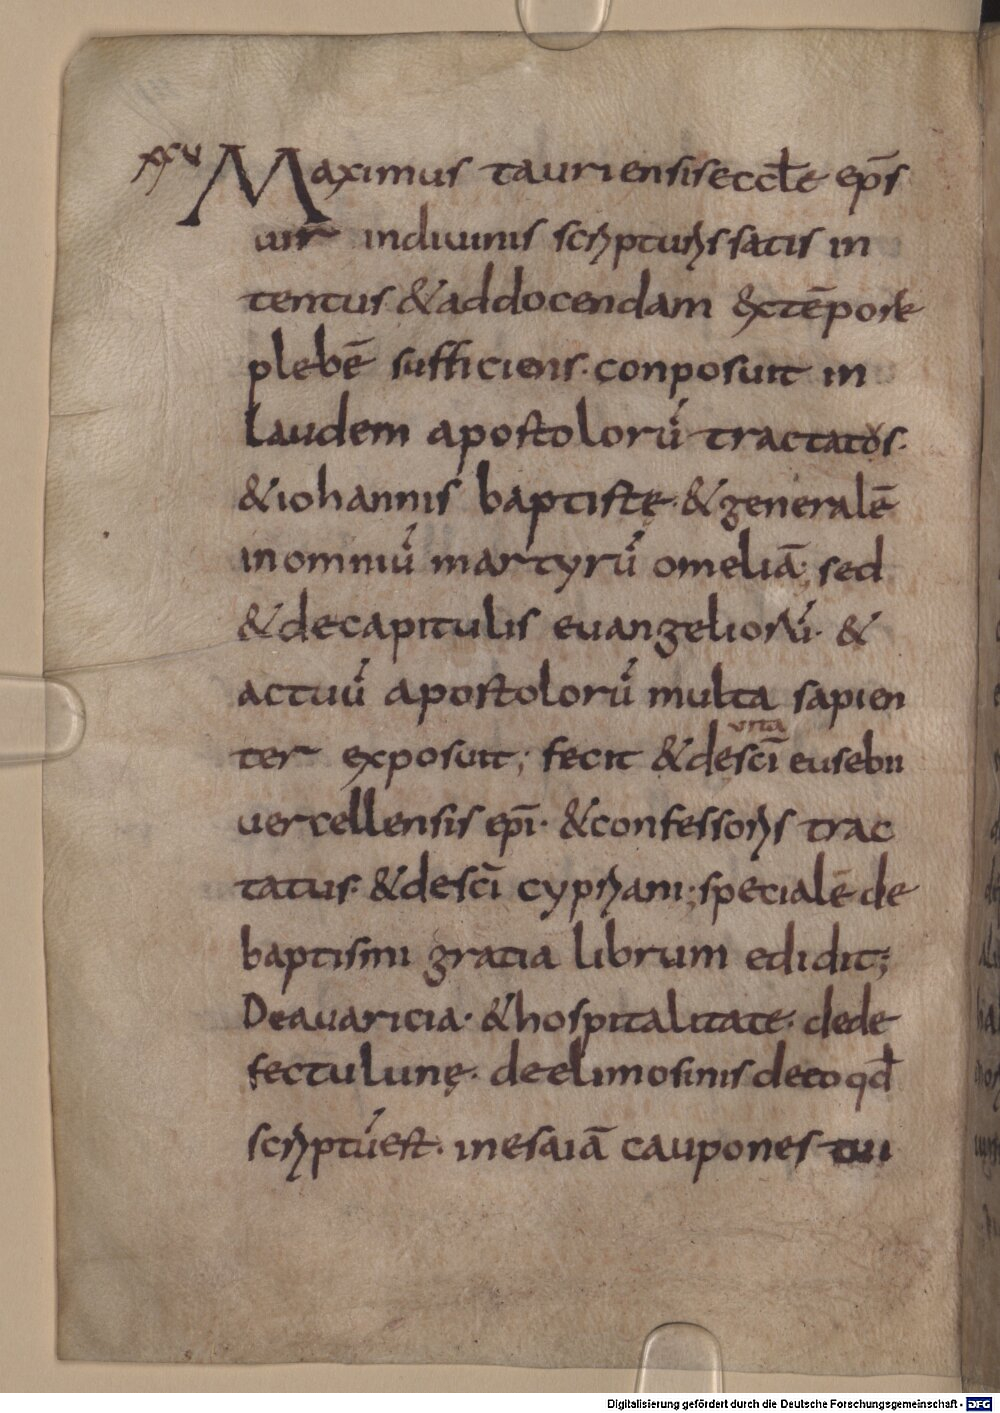 xxv Maximus tauriensis eccl̄e ep̄s
uir indiuinis scripturis satis in
tentus & addocendam extēpore
plebē sufficiens. conposuit in
laudem apostolorū tractatos.
& iohannis baptistę. & generalē
in omniū martyrū omeliā; sed
& decapitulis euangeliorū. &
actuū apostolorū multa sapien
ter exposuit; fecit & desc̄i eusebii
vita
uercellensis ep̄i. & confessoris trac
tatus. & desc̄i cypriani; specialē de
baptismi gratia librum edidit;
De auaricia. & hospitalitate. dede
fectu lunę. deelimosinis deeo qd̄
scriptū est. in esaiā caupones tui
Digitalisierung gefördert durch die Deutsche Forschungsgemeinschaft - DFG